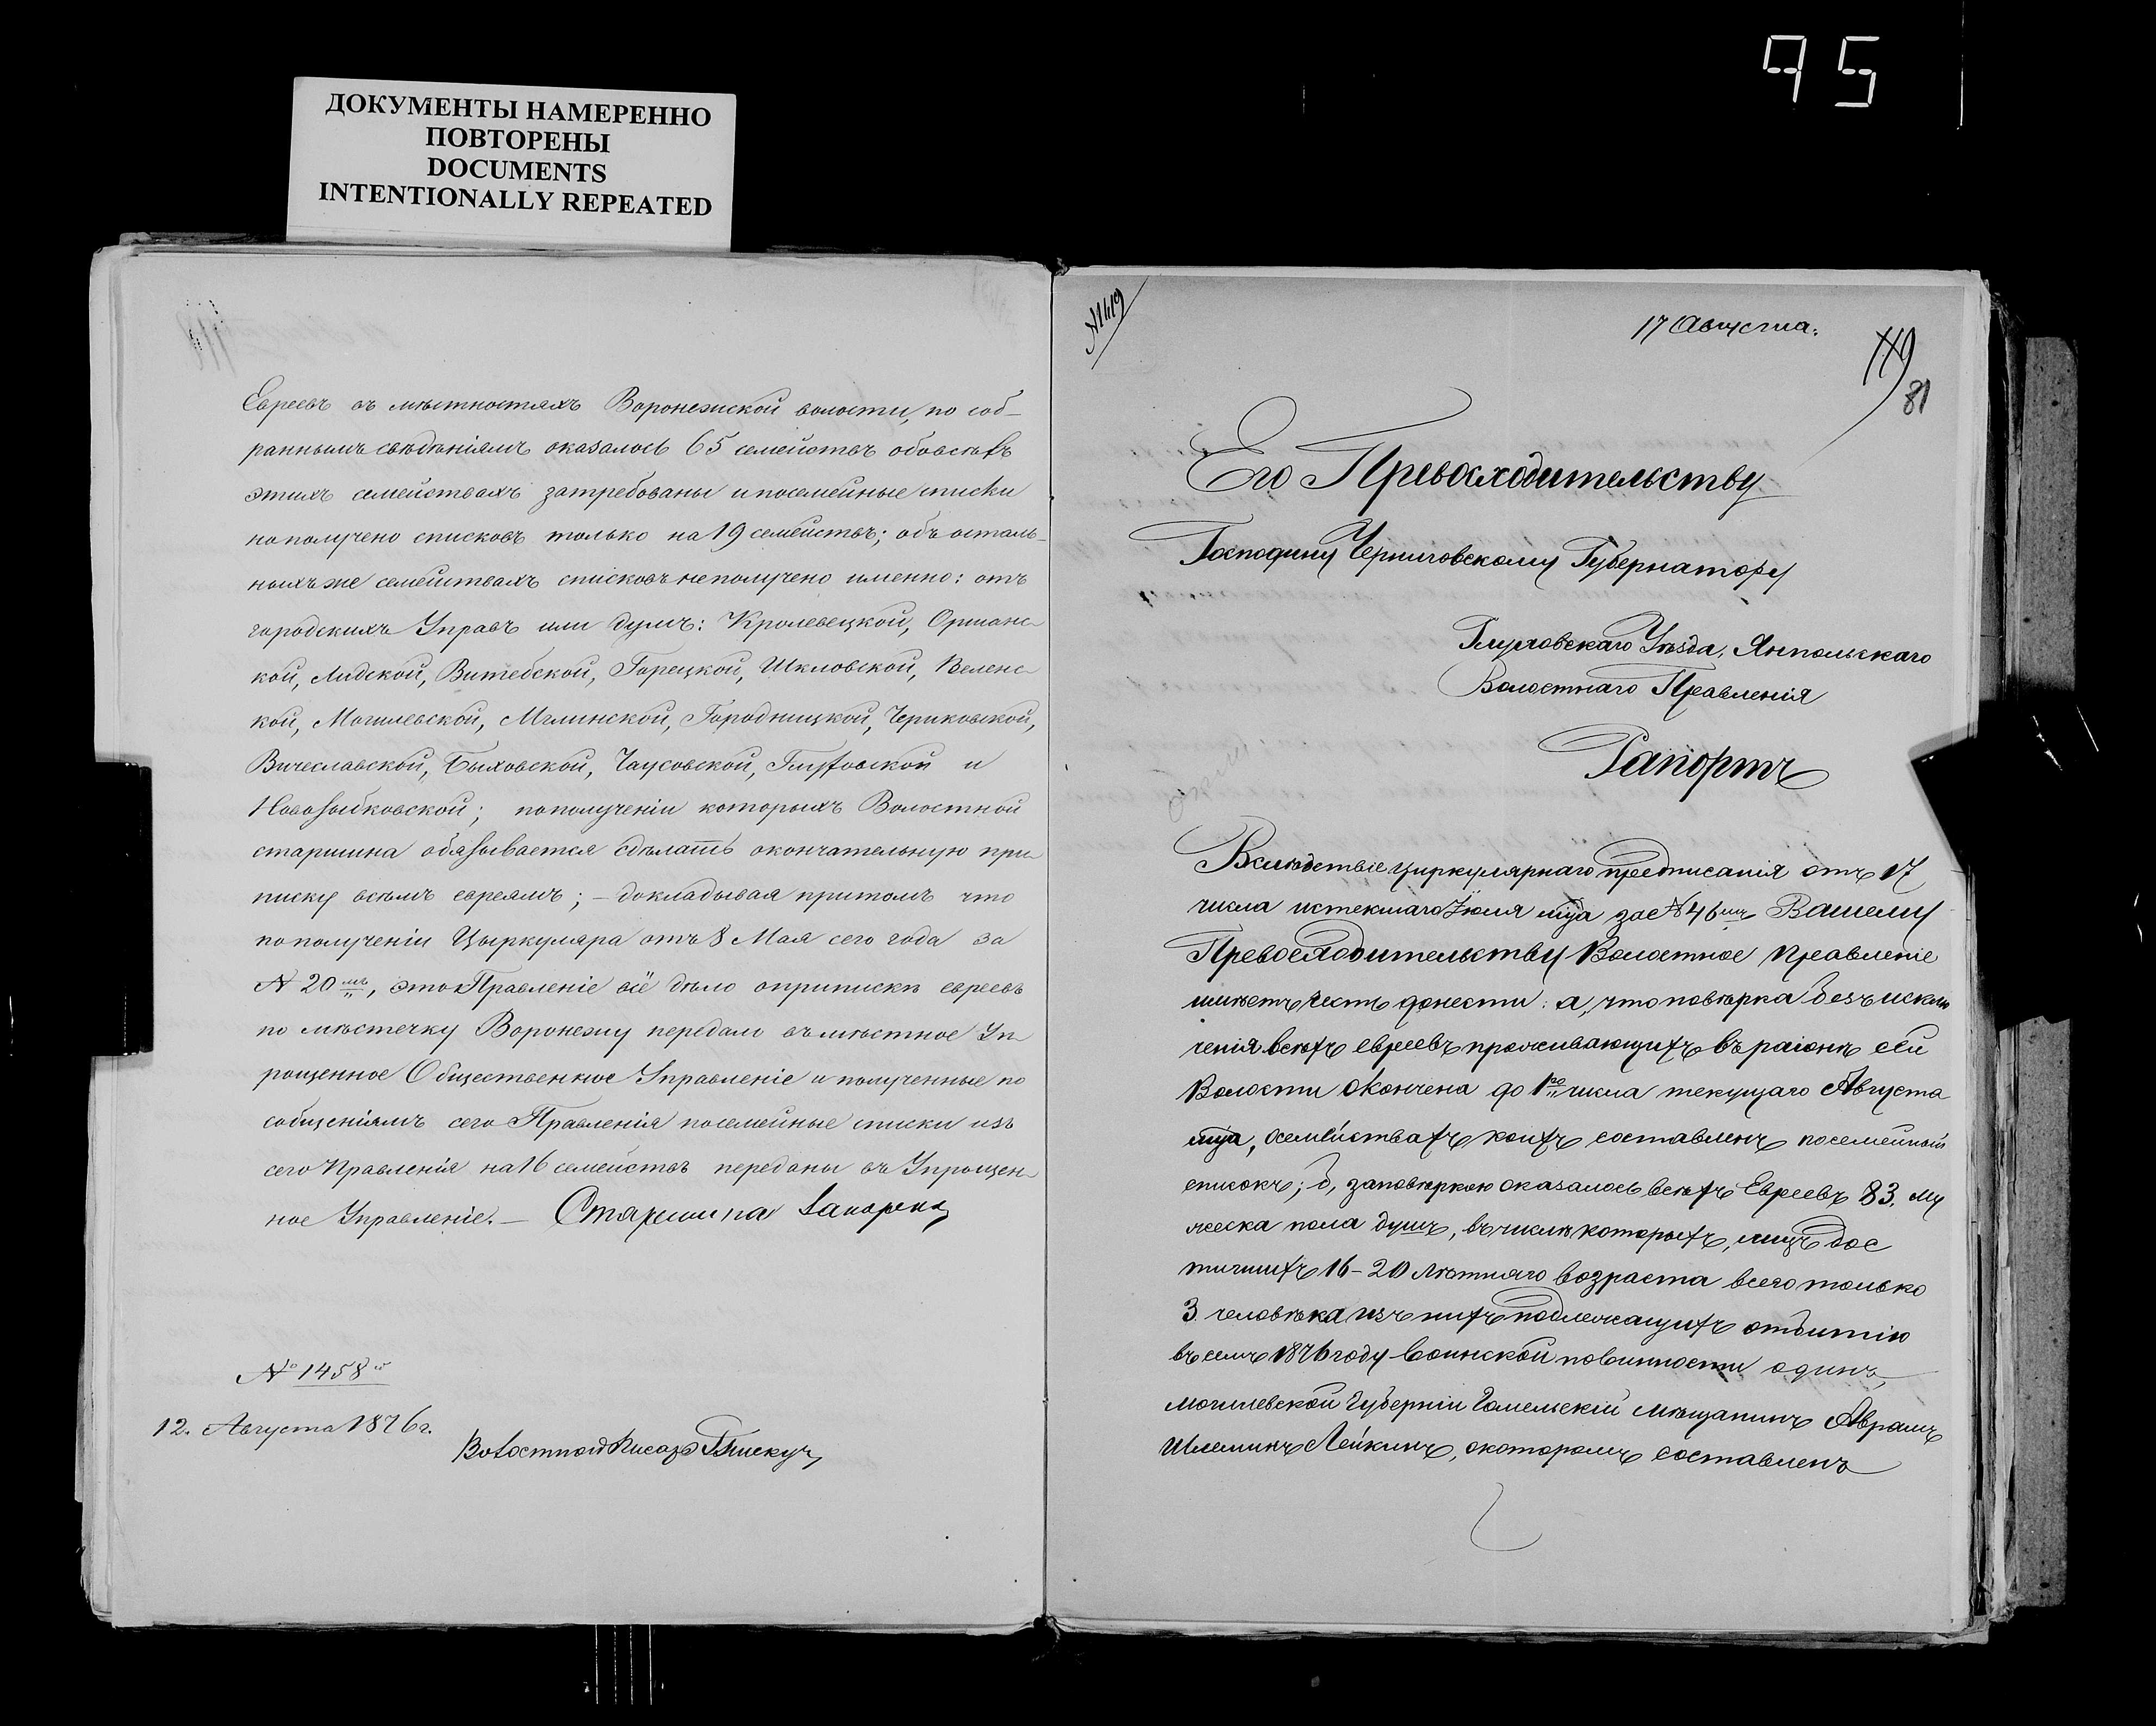 95
ДОКУМЕНТЫ НАМЕРЕННО
ПОВТОРЕНЫ
DOCUMENTS
INTENTIONALLY REPEATED
Евреевъ въ мѣстностяхъ Воронежской волости, по соб-
раннымъ свѣдѣніямъ оказалось 65 семействъ обовсѣхъ
этихъ семействахъ затребованы и посемейные списки
но получено списковъ только на 19 семействъ; объ осталь-
ныхъ же семействахъ списковъ не получено именно: отъ
городскихъ Управъ или думъ: Кролевецкой, Оршанс-
кой, Лидской, Витебской, Горецкой, Шкловской, Виленс-
кой, Могилевской, Мглинской, Городницкой, Чериковской,
Быховской, Чаусовской, Глуховской и
Новозыбковской; по полученіи которыхъ Волостной
старшина обязывается сдѣлать окончательную при-
писку всѣмъ евреямъ; – докладывая притомъ что
по полученіи Цыркуляра отъ 8 Мая сего года за
№ 20мъ, это Правленіе всё дѣло о припискѣ евреевъ
по мѣстечку Воронежу передало въ мѣстное Уп-
рощенное Общественное Управленіе и полученные по
сообщеніямъ сего Правленія посемейные списки изъ
сего Правленія на 16 семействъ переданы въ Упрощен-
ное Управленіе. – Старшина
№ 1458
12. Августа 1876 г.
Волостной Писарь
№ 1419
17 Августа.
119
81
Его Превосходительству
Господину Черниговскому Губернатору
Глуховскаго Уѣзда, Янпольскаго
Волостнаго Правленія
Рапортъ
Вслѣдствіе циркулярнаго предписанія отъ 17
числа истекшаго Іюля мца за № 46мъ Вашему
Превосходительству Волостное Правленіе
имѣетъ честь донести: а, что повѣрка безъ исклю
ченія всѣхъ евреевъ проживающихъ въ раіонѣ сей
Волости окончена до 1го числа текущаго Августа
мца, о семействахъ коихъ составленъ посемейный
списокъ; б, за повѣркою оказалось всѣхъ Евреевъ 83. му
жеска пола душъ, въ числѣ которыхъ, лицъ дос
тигшихъ 16-20 лѣтняго возраста всего только
3 человѣка изъ нихъ подлежащихъ отбытію
въ семъ 1876 году воинской повинности одинъ,
Могилевской Губерніи Гомельскій мѣщанинъ Абрамъ
Шлемикъ Лейкинъ, о которомъ составленъ